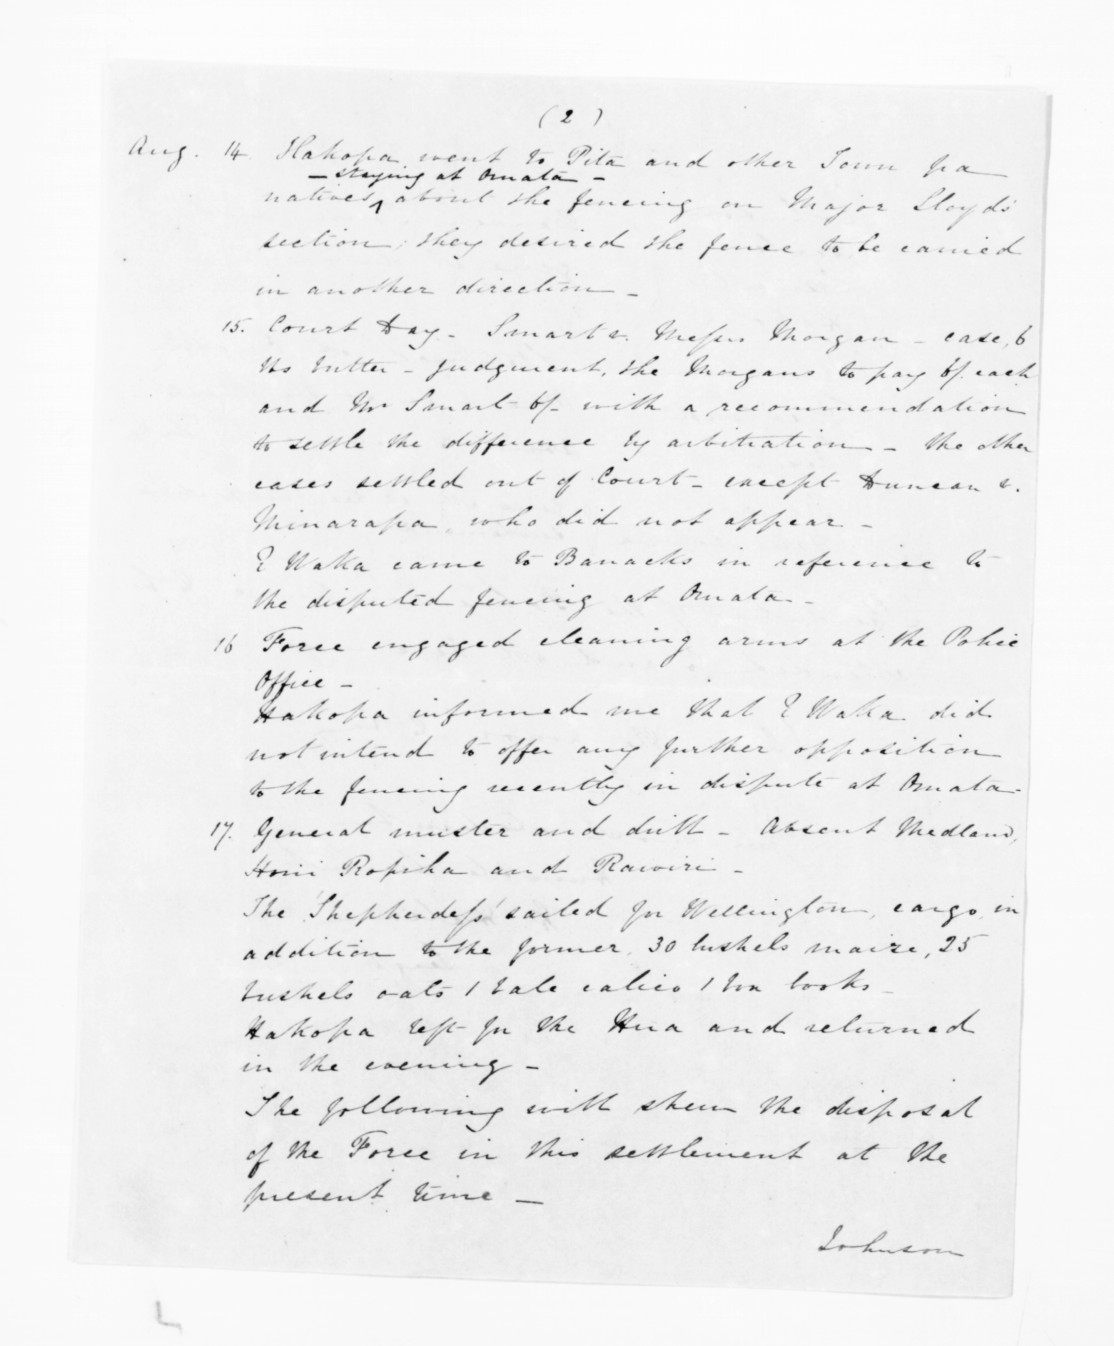 (2)
Aug. 14 Hakopa went to Pita and other Town pa
- staying at Omata -
natives ^ about the fencing on Major Lloyd's
section; they desired the fence to be carried
in another direction -
15. Court Day - Smart v. Messrs Morgan - case, 6
lbs butter - judgment, the Morgans to pay 6/. each
and Mr Smart 6/- with a recommendation
to settle the difference by arbitration - the other
cases settled out of Court - except Duncan v.
Minarapa, who did not appear -
E Waka came to Banacks in reference to
the disputed fencing at Omata -
16 Force engaged cleaning arms at the Police
Office -
Hakopa informed me that E Waka did
not intend to offer any further opposition
to the fencing recently in dispute at Omata -
17. General muster and drill - Absent Medland,
Honi Ropiha and Rawiri -
The 'Shepherdess' sailed for Wellington, cargo in
addition to the former, 30 bushels maize, 25
bushels oats 1 bale calico 1 box books -
Hakopa left for the Hua and returned
in the evening -
The following will shew the disposal
of the Force in this settlement at the
present time -
Johnson